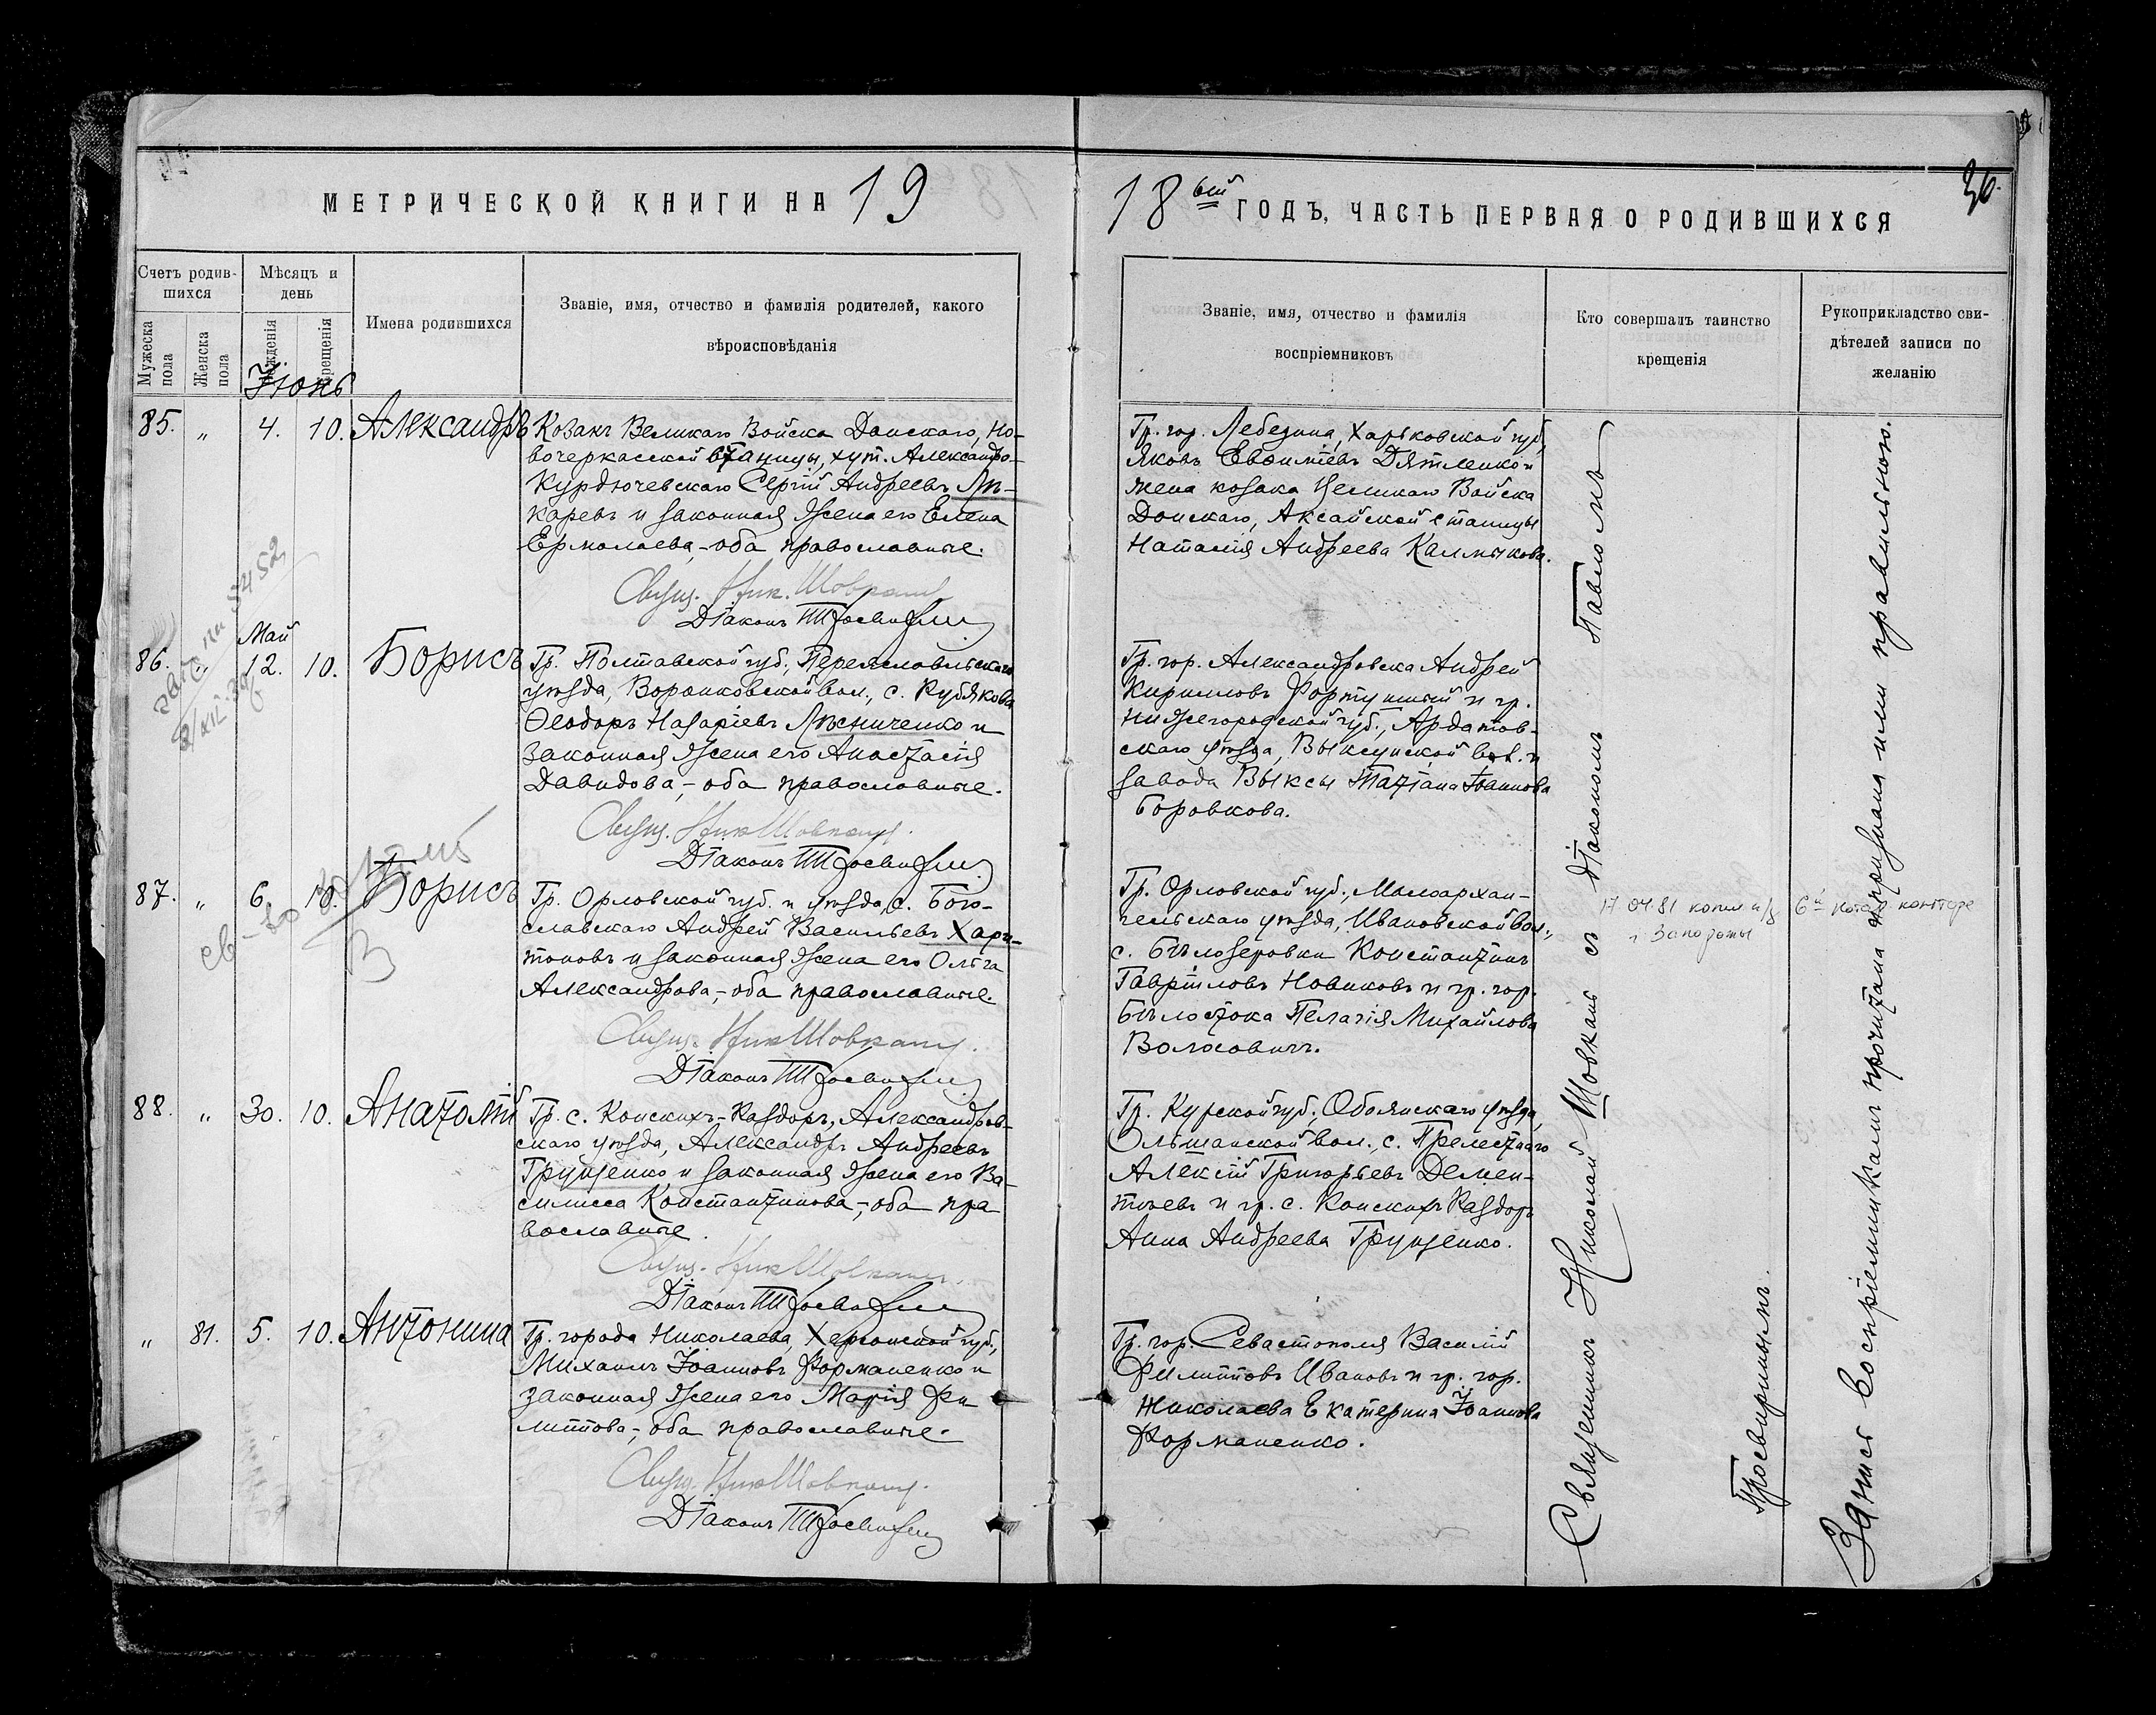 МЕТРИЧЕСКОЙ КНИГИ НА 19
18ый ГОДЪ, ЧАСТЬ ПЕРВАЯ О РОДИВШИХСЯ
36.
Счетъ родив-
шихся
Мужеска пола
Женска пола
Мѣсяцъ и
день
рожденія
крещенія
Имена родившихся
Званіе, имя, отчество и фамилія родителей, какого
вѣроисповѣданія
Званіе, имя, отчество и фамилія
воспріемниковъ
Кто совершалъ таинство
крещенія
Рукоприкладство сви-
дѣтелей записи по
желанію
Іюнь
85. " 4. 10. Александръ
Козакъ Великаго Войска Донского, Но-
вочеркасской станицы, хут. Александро-
Курдючевскаго Сергій Андреевъ
каревъ и законная жена его Елена
Ермолаева,- оба православные.
Свящ. Ник. Шовкапъ
Діаконъ П. Просвиринъ
Гр. гор. Лебедина, Харьковской губ.,
Яковъ Евѳиміевъ Дятленко и
жена козака Великаго Войска
Донского, Аксайской станицы
Наталія Андреева Калмыкова.
Май
86. " 12. 10. Борисъ
Гр. Полтавской губ., Переяславльскаго
уѣзда, Воронковской вол., с. Рудякова
Ѳеодоръ Назаріевъ Лѣсниченко и
законная жена его Анастасія
Давидова,- оба православные.
Свящ. Ник. Шовкапъ.
Діаконъ П. Просвиринъ
Гр. гор. Александровска Андрей
Кирилловъ и гр.
Нижегородской губ., Ардатов-
скаго уѣзда, Выксунской вол. и
завода Выксы Татіана Іоаннова
Боровкова.
87. " 6. 10. Борисъ
Гр. Орловской губ. и уѣзда, с. Бого-
славскаго Андрей Васильевъ Хари-
тоновъ и законная жена его Ольга
Александрова,- оба православные.
Свящ. Ник. Шовкапъ.
Діаконъ П. Просвиринъ
Гр. Орловской губ., Малоархан-
гельскаго уѣзда, Ивановской вол.,
с. Бѣлозеровки Константинъ
Гавріиловъ Новиковъ и гр. гор.
Бѣлостока Пелагія Михайлова
Волосовичъ.
17 04.81 копия
конторе
88. " 30. 10. Анатолій
Гр. с. Конскихъ-Раздоръ, Александров-
скаго уѣзда, Александръ Андреевъ
Грунценко и законная жена его Ва-
силисса Константинова,- оба пра
вославные.
Свящ. Ник. Шовкапъ.
Діаконъ П. Просвиринъ
Гр. Курской губ., Обоянскаго уѣзда,
Ольшанской вол., с. Прелестнаго
Алексій Григорьевъ Демен-
тьевъ и гр. с. Конскихъ Раздоръ
Анна Андреева Грунценко.
" 81. 5. 10. Антонина
Гр. города Николаева, Херсонской губ.,
Михаилъ Іоанновъ Форманенко и
законная жена его Марія Фи
липпова,- оба православные.
Свящ. Ник. Шовкапъ.
Діаконъ П. Просвиринъ
Гр. гор. Севастополя Василій
Филипповъ Ивановъ и гр. гор.
Николаева Екатерина Іоаннова
Форманенко.
Священникъ Николай Шовкапъ съ діакономъ Павломъ
Просвиринымъ.
Запись воспріемниками прочитана и признана ими правильною.